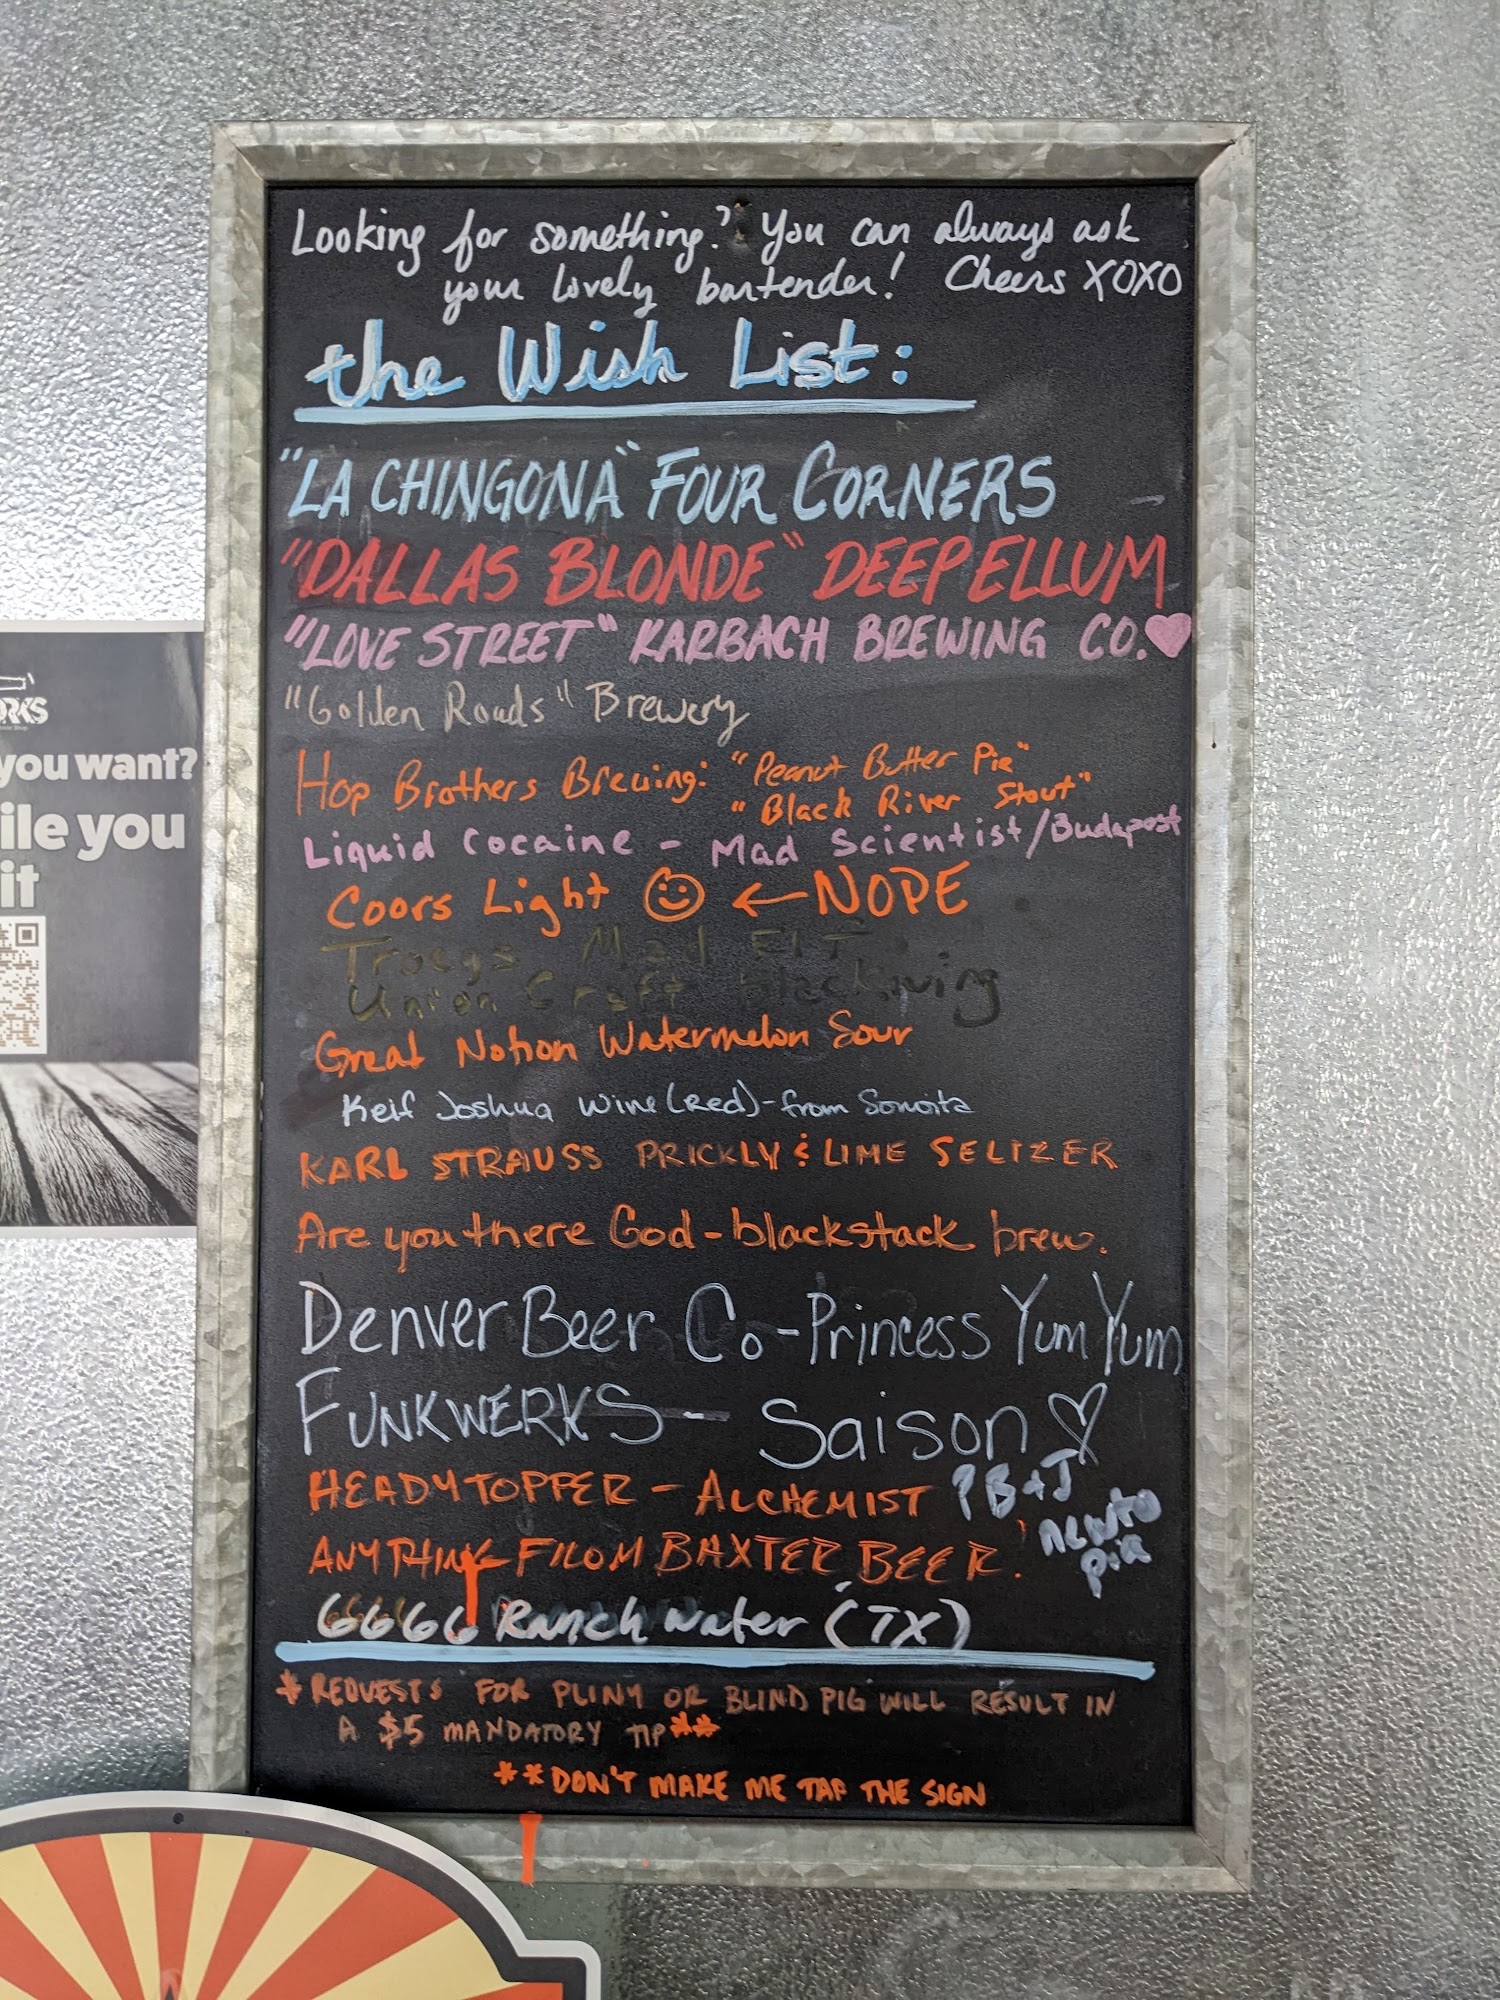 Looking for something? You can always ask
your lovely bartender! Cheers XOXO
the Wish List:
"LA CHINGONA" FOUR CORNERS
"DALLAS BLONDE" DEEP ELLUM
"LOVE STREET" KARBACH BREWING CO.
"Golden Roads" Brewery
Hop Brothers Brewing: "Peanut Butter Pie"
"Black River Stout"
Liquid Cocaine - Mad Scientist/Budapest
Coors Light ☺ ← NOPE
Troegs Mad Elf
Union Craft Blackwing
Great Notion Watermelon Sour
Keif Joshua Wine (Red) - from Sonoita
KARL STRAUSS PRICKLY & LIME SELTZER
Are you there God - blackstack brew.
Denver Beer Co - Princess Yum Yum
FUNKWERKS - Saison ♡
HEADY TOPPER - ALCHEMIST PB+J
ANYTHING FROM BAXTER BEER.
6666 Ranch Water (TX)
*REQUESTS FOR PLINY OR BLIND PIG WILL RESULT IN
A $5 MANDATORY TIP**
**DON'T MAKE ME TAP THE SIGN
ORKS
you want?
ile you
it